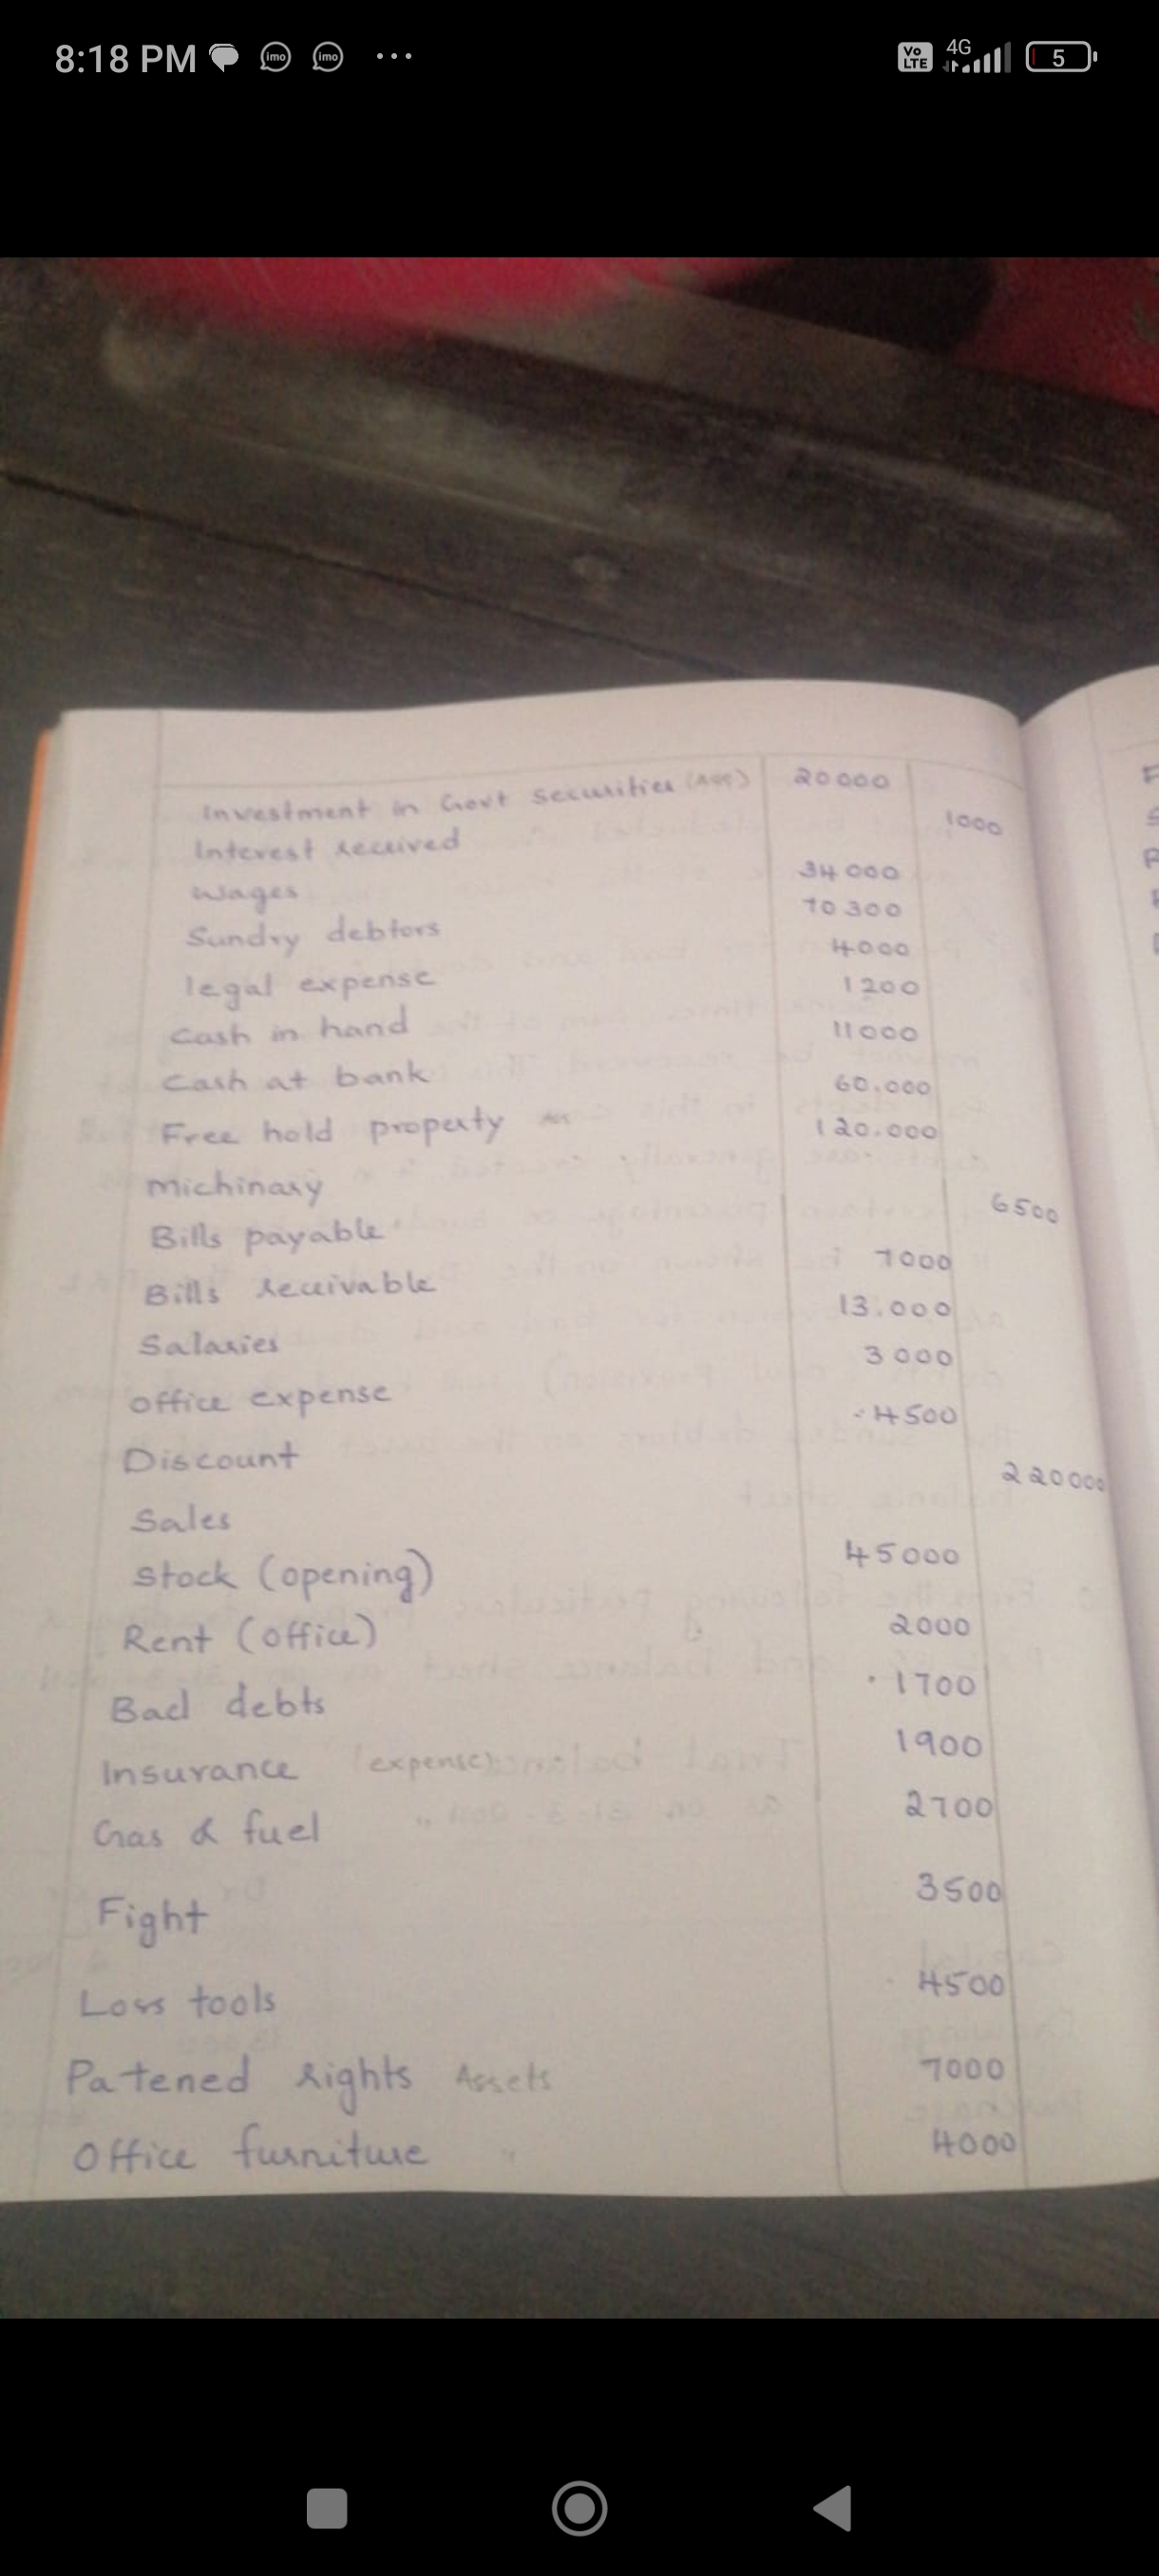 8:18 PM imo imo ... Vo LTE 4G 5
Investment in Govt securities (Ass) 20000
Interest received 1000
Wages 34000
Sundry debtors 70300
legal expense 4000
Cash in hand 1200
Cash at bank 11000
Free hold property 60.000
Michinary 120.000
Bills payable 6500
Bills receivable 7000
Salaries 13.000
Office expense 3000
Discount 4500
Sales 220000
Stock (opening) 45000
Rent (office) 2000
Bad debts 1700
Insurance (expense) 1900
Gas & fuel 2700
Fight 3500
Loss tools 4500
Patened rights Assets 7000
Office furniture " 4000